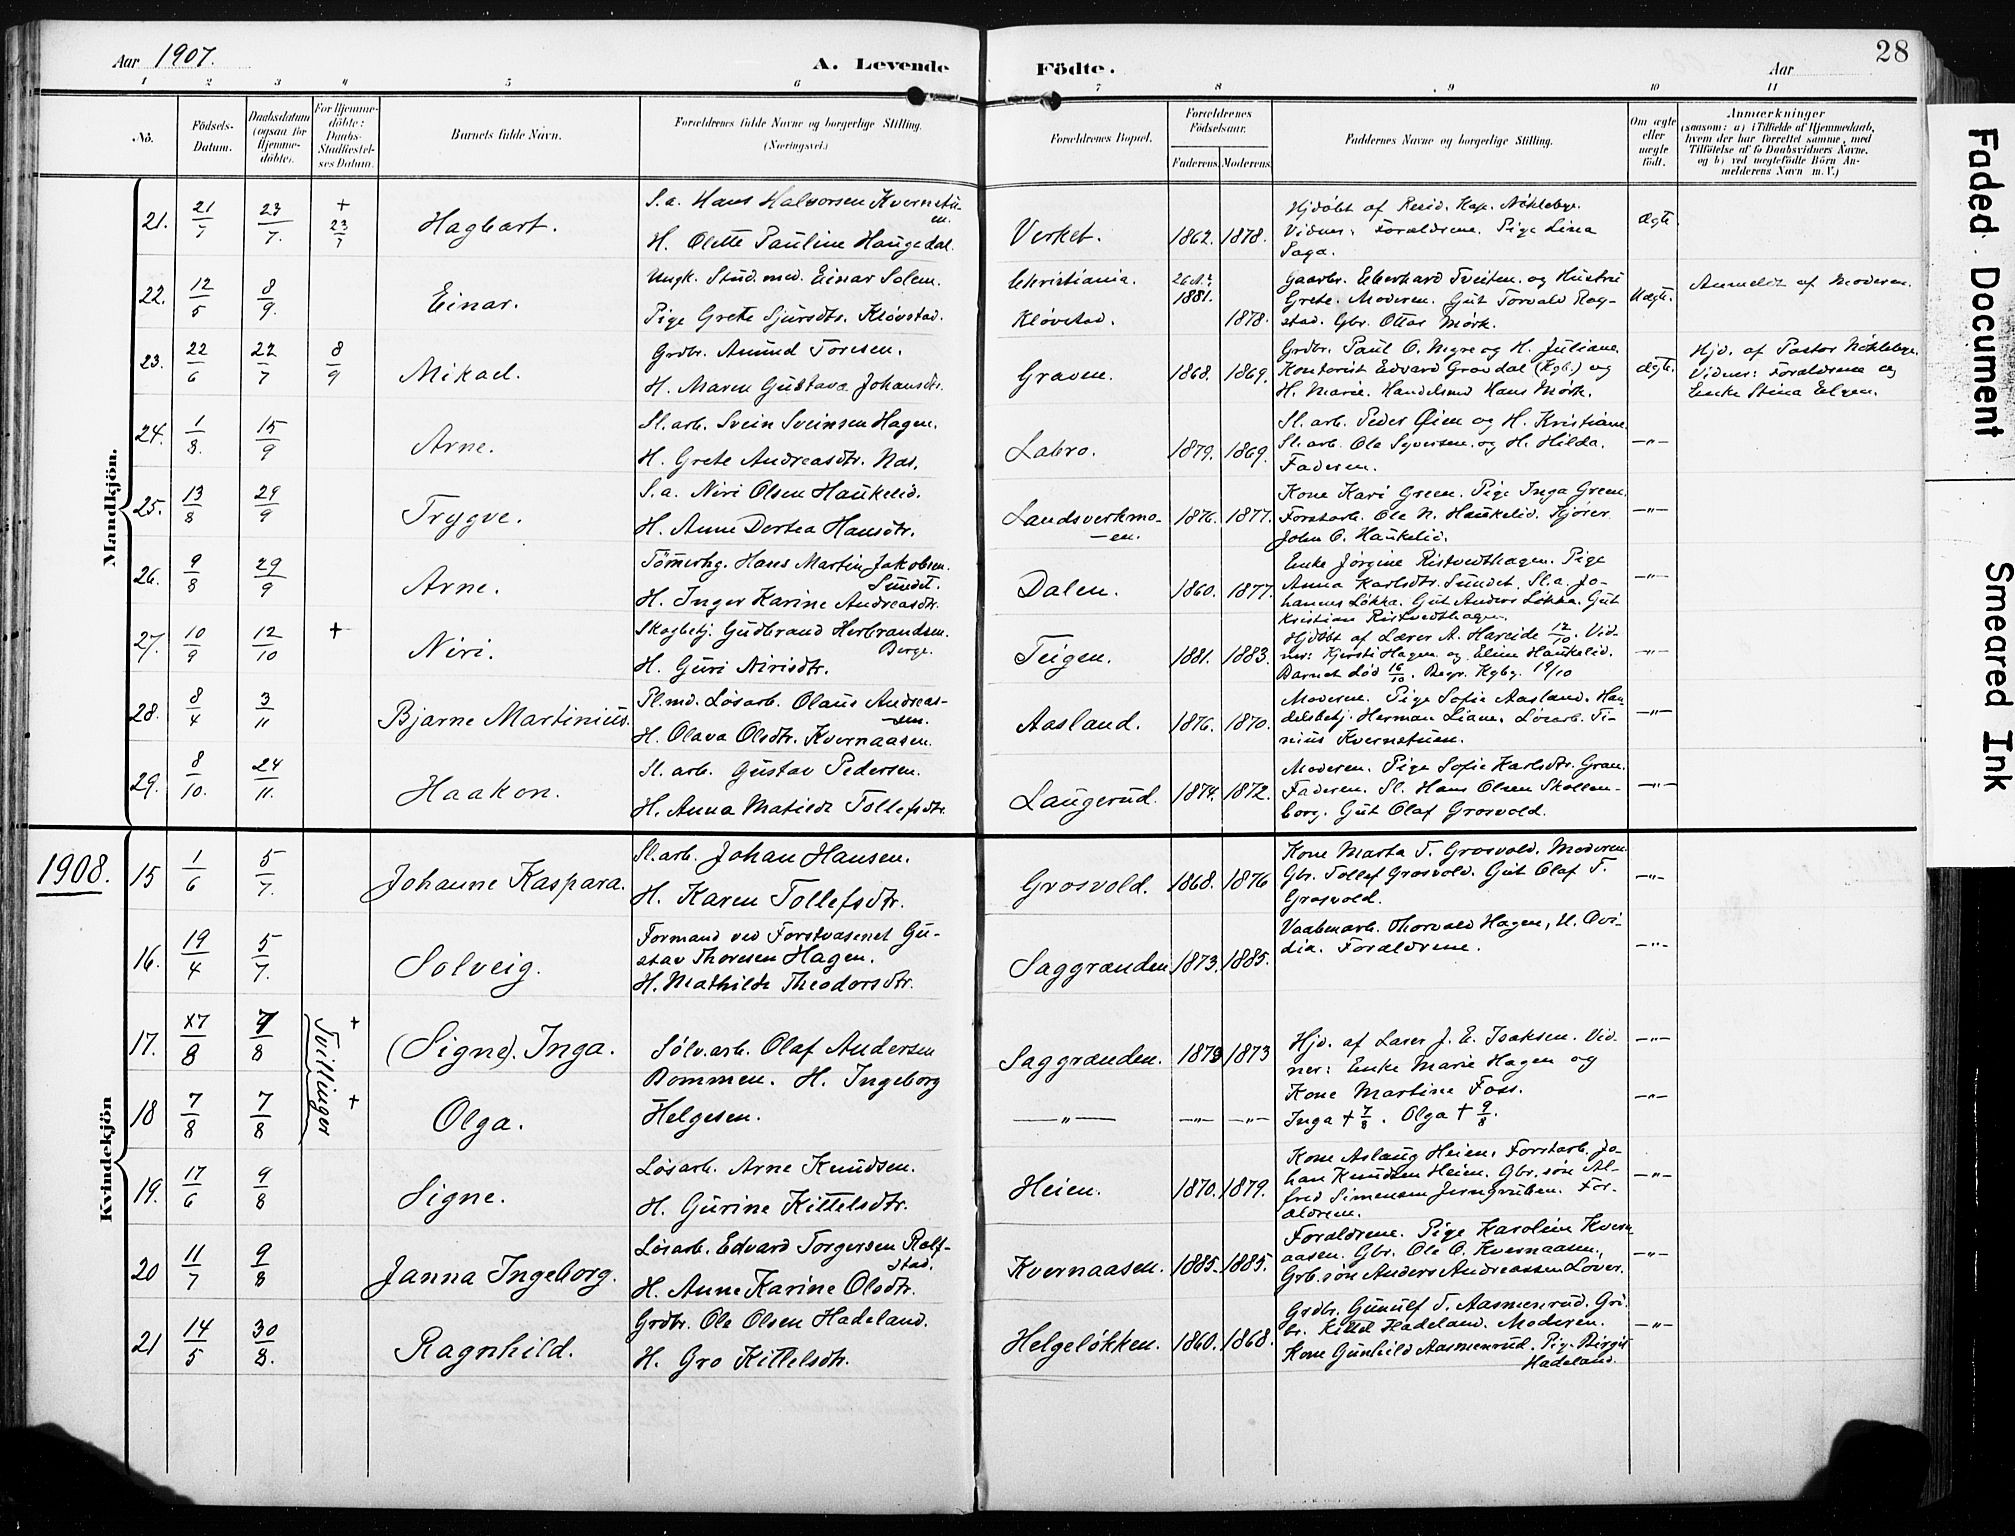 Aar 1907.
A. Levende Födte.
Aar
28
1 2 3 4 5 6 7 8 9 10 11
No.
Födsels-Datum.
Daabsdatum (ogsaa for Hjemmedöbte).
For Hjemmedöbte: Daabs-Stadfæstelses Datum.
Barnets fulde Navn.
Forældrenes fulde Navne og borgerlige Stilling. (Næringsvei.)
Forældrenes Bopæl.
Forældrenes Födselsaar.
Faderens. Moderens.
Faddernes Navne og borgerlige Stilling.
Om ægte eller uægte födt.
Anmærkninger
(saasom: a) i Tilfælde af Hjemmedaab, hvem der har forrettet samme, med Tilföielse af to Daabsvidners Navne, og b) ved uægtefödte Börn Anmelderens Navn m. V.)
Mandkjön.
21. 21/7 23/7. + 23/7 Hagbart.
S. a. Hans Halvorsen Kvernstuen.
H. Olette Pauline Haugedal.
Verket. 1862. 1878.
Hjdöbt af Resid. Kap. Nöklebye.
Vidner: Forældrene. Pige Lina
Saga.
Ægte.
22. 12/5 8/9. Einar.
Ungk. Stud. med. Einar Solem.
Pige Grete Sjursdtr. Klövstad.
Christiania. 1881.
Klövstad. 1878.
Gaarbr. Eberhard Tveiten og Hustru
Grete. Moderen. Gut Torvald Rogstad. Gbr. Ottar Mörk.
Uægte.
Anmeldt af Moderen.
23. 22/6 22/7 8/9 Mikael.
Grdbr. Amund Toresen.
H. Maren Gustava Johansdtr.
Graven. 1868. 1869.
Grdbr. Paul O. Myre og H. Juliane.
Kontorist Edvard Gravdal (Kgb.) og
H. Marie. Handelsmd Hans Mörk.
ægte.
Hjd. af Pastor Nöklebye.
Vidner: Forældrene og
Enke Stina Elgen.
24. 1/8. 15/9 Arne.
Sl. arb. Svein Sveinsen Hagen.
H. Grete Andreasdtr. Næs.
Labro. 1879. 1869.
Sl. arb. Peder Öien og H. Kristiane
Sl. arb. Ole Syversen og H. Hilda.
Faderen.
—"—
25. 13/8 29/9 Trygve.
S. a. Niri Olsen Haukelid.
H. Anne Dortea Hansdtr.
Landsverkmoen. 1876. 1877.
Kone Kari Green. Pige Inga Green.
Forstarb. Ole N. Haukelid. Kjörer
John O. Haukelid.
—"—
26. 9/8 29/9 Arne.
Tömerhg. Hans Martin Jakobsen
Sundet.
H. Inger Karine Andreasdtr.
Dalen. 1860. 1877.
Enke Jörgine Ristvedthagen. Pige
Anna Karlsdtr. Sundet. Sl. a. Johannes Lökka. Gut Anders Lökka. Gut
Kristian Ristvedthagen.
—"—
27. 10/9 12/10 + Niri.
Skogbetj. Gudbrand Herbrandsen
Berge.
H. Guri Nirisdtr.
Teigen. 1881. 1883.
Hjdöbt af Lærer A. Hareide 12/10. Vidner: Kjersti Hagen og Eline Haukelid.
Barnet död 16/10. Begr. Kgbg. 19/10
—"—
28. 8/4 3/11 Bjarne Martinius.
Pl.md. Lösarb. Olaus Andreassen.
H. Olava Olsdtr. Kvernaasen.
Aasland. 1876. 1870.
Moderen. Pige Sofie Aasland. Handelsbetj. Herman Liane. Lösarb. Tinius Kvernstuen.
—"—
29. 8/10. 24/11. Haakon.
Sl. arb. Gustav Pedersen.
H. Anna Matilde Tollefsdtr.
Laugerud. 1874. 1872.
Moderen. Pige Sofie Karlsdtr. Gran.
Faderen. Sl. Hans Olsen Skollenborg. Gut Olaf Grosvold.
—"—
1908.
Kvindekjön
15 1/6 5/7. Johanne Kaspara.
Sl. arb. Johan Hansen.
H. Karen Tollefsdtr.
Grosvold. 1868. 1876
Kone Marta T. Grosvold. Moderen.
Gbr. Tollef Grosvold. Gut Olaf T.
Grosvold.
—"—
16. 19/4 5/7. Solveig.
Formand ved Forstvæsenet Gustav Thoresen Hagen.
H. Mathilde Theodorsdtr.
Saggrænden 1873. 1885.
Vaabenarb. Thorvald Hagen, H. Ovidia. Forældrene.
—"—
17. 7/8 7/8 + (Signe). Inga.
Tvillinger
Sölv.arb. Olaf Andersen
Dommen. H. Ingeborg
Helgesen.
Saggrænden. 1873 1873
Hjd. af Lærer J. E. Isaksen. Vidner: Enke Marie Hagen og
Kone Martine Foss.
Inga + 7/8. Olga + 9/8.
—"—
18 7/8 7/8 + Olga.
—"— —"— —"— —"—
19. 17/6 9/8 Signe.
Lösarb. Arne Knudsen.
H. Gurine Kittelsdtr.
Heien. 1870. 1879.
Kone Aslaug Heien. Forstarb. Johan Knudsen Heien. Gbr. sön Alfred Simensen Jerngruben. Forældrene.
—"—
20 11/7 9/8 Janna Ingeborg.
Lösarb. Edvard Torgersen Rolfstad.
H. Anne Karine Olsdtr.
Kvernaasen. 1885. 1885.
Forældrene. Pige Karoline Kvernaasen. Gbr. Ole O. Kvernaasen,
Grb. sön Anders Andreassen Lover.
—"—
21 14/5 30/8. Ragnhild.
Grdbr. Ole Olsen Hadeland.
H. Gro Kittelsdtr.
Helgelökken. 1860. 1868.
Grdbr. Gunulf T. Aasmenrud. Grdbr. Kittel Hadeland. Moderen.
Kone Gunhild Aasmenrud. Pige Birgit
Hadeland.
—"—
Faded Document
Smeared Ink